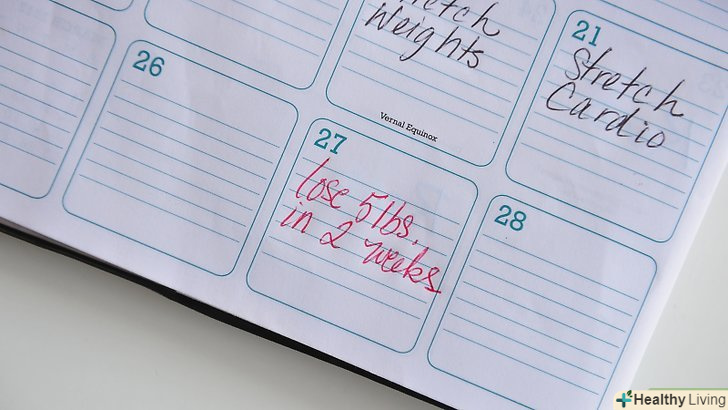 Stretch
Weights
Vernal Equinox
21
Stretch
Cardio
26
27
lose 5 lbs.
in 2 weeks
28
Healthy Living